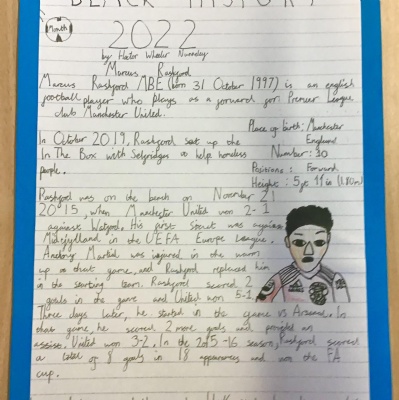 BLACK HISTORY
Month
2022
by Hector Wheeler Nunneley
Marcus Rashford
Marcus Rashford MBE (born 31 October 1997) is an english
football player who plays as a forward for Premier League
club Manchester United.
Place of birth: Manchester
England
In October 2019, Rashford set up the
In The Box with Selfridges to help homeless
people.
Number: 10
Positions: Forward
Height: 5 ft 11 in (1.80m)
Rashford was on the bench on November 21
2015, when Manchester United won 2-1
against Watford. His first was against
Midtjylland in the UEFA Europe League.
Anthony Martial was injured in the warm
up to that game, and Rashford replaced him
in the starting team. Rashford scored 2
goals in the game and United won 5-1.
Three days later, he started in the game vs Arsenal. In
that game, he scored 2 more goals and an
assist. United won 3-2. In the 2015-16 season, Rashford scored
a total of 8 goals in 18 appearances and won the FA
cup.